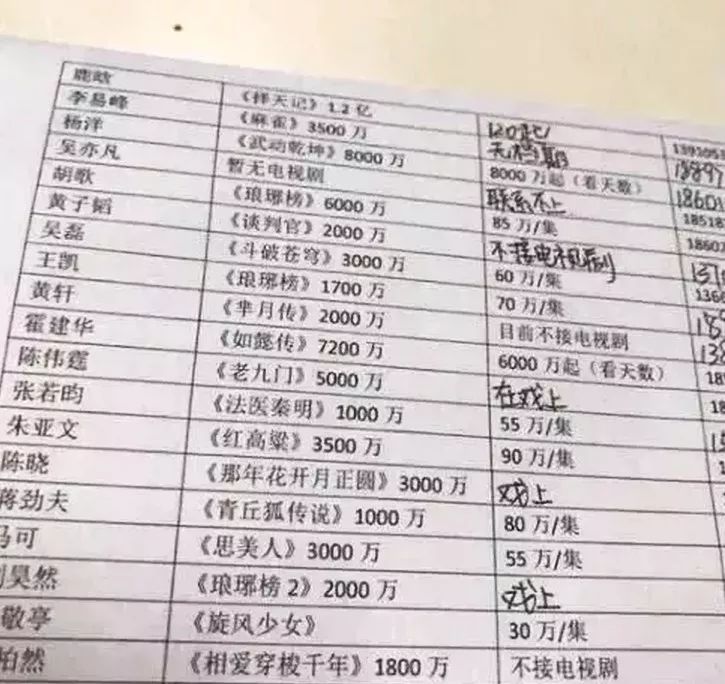 鹿晗 《择天记》1.2 亿 120起
李易峰 《麻雀》3500 万 无档期
杨洋 《武动乾坤》8000 万 8000 万起（看天数）
吴亦凡 暂无电视剧 联系不上
胡歌 《琅琊榜》6000 万 85 万/集
黄子韬 《谈判官》2000 万 不接电视剧
吴磊 《斗破苍穹》3000 万 60 万/集
王凯 《琅琊榜》1700 万 70 万/集
黄轩 《芈月传》2000 万 目前不接电视剧
霍建华 《如懿传》7200 万 6000 万起（看天数）
陈伟霆 《老九门》5000 万 在戏上
张若昀 《法医秦明》1000 万 55 万/集
朱亚文 《红高粱》3500 万 90 万/集
陈晓 《那年花开月正圆》3000 万 戏上
蒋劲夫 《青丘狐传说》1000 万 80 万/集
马可 《思美人》3000 万 55 万/集
刘昊然 《琅琊榜 2》2000 万 戏上
敬亭 《旋风少女》 30 万/集
柏然 《相爱穿梭千年》1800 万 不接电视剧